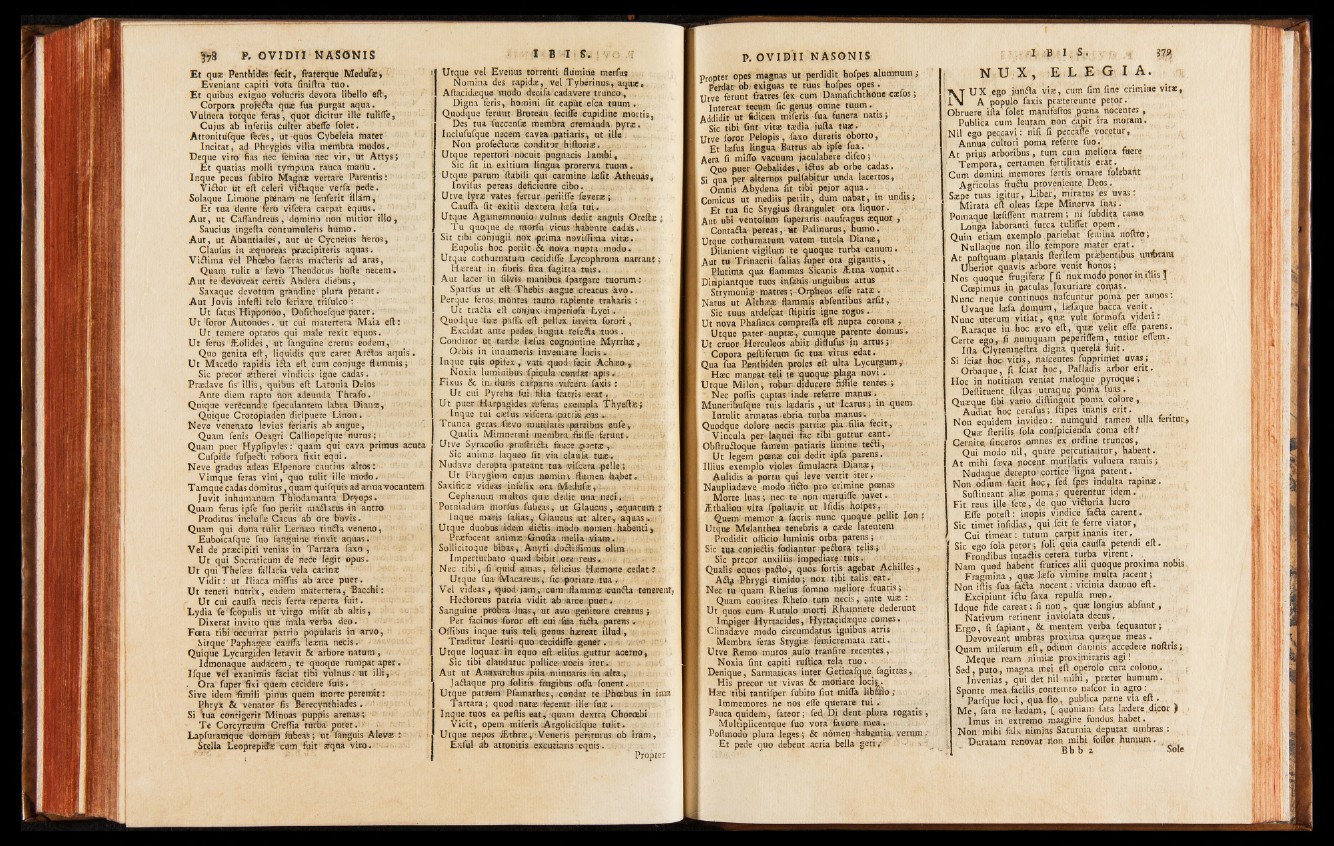 378 P. OVIDII NASONIS
Et quæ Penthides fecit, fraterque Medusæ,
Eveniant capiti vota sinistra tuo.
Et quibus exiguo volucris devota libello est,
Corpora projecta quæ sua purgat aqua.
Vulnera totque feras, quot dicitur ille tulisse,
Cujus ab inferiis culter abesse solet.
Attonitusque seces, ut quos Cybeleia mater
Incitat, ad Phrygios vilia membra modos.
Deque viro fias nec femina nec vir, ut Attys;
Et quatias molli tympana rauca manu.
Inque pecus subito Magnæ vertare Parentis:
Victor ut est celeri victaque versa pede.
Solaque Limone pœnam ne senserit illam,
Et tua dente fero viscera carpat equus.
Aut, ut Cassandreus, domino non mitior illo,
Saucius ingesta contumuleris humo.
Aut, ut Abantiades, aut ut Cycneius heros,
Clausus in æquoreas præcipiteris aquas.
Victima vel Phœbo sacras macteris ad aras,
Quam tulit a sævo Theodotus hoste necem.
Aut te devoveat certis Abdera diebus,
Saxaque devotum grandine plura petant.
Aut Jovis infesti telo feriare trisulco:
Ut satus Hipponoo, Dosithoesque pater.
Ut soror Autonoes, ut cui matertera Maia est:
Ut temere optatos qui male rexit equos.
Ut ferus Æolides, ut sanguine cretus eodem,
Quo genita est, liquidis quæ caret Arctos aquis.
Ut Macedo rapidis icta est cum conjuge flammis;
Sic precor ætherei vindicis igne cadas.
Prædave sis illis, quibus est Latonia Delos
Ante diem rapto non adeunda Thraso.
Quique verecundæ speculantem labra Dianæ,
Quique Crotopiaden diripuere Linon.
Neve venenato levius feriaris ab angue,
Quam senis Oeagri Calliopesque nurus;
Quam puer Hypsipyles: quam qui cava primus acuta
Cuspide suspecti robora fixit equi.
Neve gradus adeas Elpenore cautius altos:
Vimque feras vini, quo tulit ille modo.
Tamque cadas domitus, quam quisquis ad arma vocantem
Juvit inhumanum Thiodamanta Dryops.
Quam ferus ipse suo periit mactatus in antro
Proditus inclusæ Cacus ab ore bovis.
Quam qui dona tulit Lernæo tincta veneno,
Euboicasque suo sanguine tinxit aquas.
Vel de præcipiti venias in Tartara saxo,
Ut qui Socraticum de nece legit opus.
Ut qui Theseæ fallacia vela carinæ
Vidit: ut Iliaca missus ab arce puer.
Ut teneri nutrix, eadem matertera, Bacchi:
Ut cui caussa necis serra reperta fuit.
Lydia se scopulis ut virgo misit ab altis,
Dixerat invito quæ mala verba deo.
Fœta tibi occurrat patrio popularis in arvo,
Sitque Paphageæ caussa leæna necis.
Quique Lycurgiden letavit & arbore natum,
Idmonaque audacem, te quoque rumpat aper.
Isque vel exanimis faciat tibi vulnus: ut illi,
Ora super fixi quem cecidere suis.
Sive idem simili pinus quem morte peremit:
Phryx & venator sis Berecynthiades.
Si tua contigerit Minoas puppis arenas;
Te Corcyræum Cressia turba putet.
Lapsuramque domum subeas; ut sanguis Alevæ:
Stella Leoprepidæ cum fuit æqua viro.
I B I S.
Utque vel Evenus torrenti flumine mersus
Nomina des rapidæ, vel Tyberinus, aquæ.
Astacidæque modo decisa cadavere trunco,
Digna feris, homini sit caput esca tuum.
Quodque ferunt Brotean fecisse cupidine mortis,
Des tua succensæ membra cremanda pyræ.
Inclususque necem cavea patiaris, ut ille
Non profecturæ conditor historiæ.
Utque repertori nocuit pugnacis Iambi,
Sic sit in exitium lingua proterva tuum.
Utque parum stabili qui carmine læsit Athenas,
Invisus pereas deficiente cibo.
Utve lyræ vates fertur periisse severæ;
Caussa sit exitii dextera læsa tui.
Utque Agamemnonio vulnus dedit anguis Orestæ;
Tu quoque de morsu virus habente cadas.
Sit tibi conjugii nox prima novissima vitæ.
Eupolis hoc periit & nova nupta modo.
Utque cothurnatum cecidisse Lycophrona narrant;
Hæreat in fibris fixa sagitta tuis.
Aut lacer in silvis manibus spargare tuorum:
Sparsus ut est Thebis angue creatus avo.
Perque feros montes tauro rapiente traharis:
Ut tracta est conjux imperiosa Lyci.
Quodque suæ passa est pellex invita sorori,
Excidat ante pedes lingua resecta tuos.
Conditor ut tardæ læsus cognomine Myrrhæ,
Orbis in innumeris inveniare locis.
Inque tuis opifex, vati quod fecit Achæo,
Noxia luminibus spicula condat apis.
Fixus & in duris carparis viscera saxis:
Ut cui Pyrrha sui filia fratris erat.
Ut puer Harpagides referas exempla Thyestæ;
Inque tui cæsus viscera patris eas.
Trunca geras sævo mutilatis partibus ense,
Qualia Mimnermi membra fuisse ferunt.
Utve Syracosio præstricta fauce poetæ,
Sic animæ laqueo sit via clausa tuæ.
Nudave derepta pateant tua viscera pelle;
Ut Phrygium cujus nomina flumen habet.
Saxificæ videas infelix ora Medusæ,
Cephenum multos quæ dedit una neci.
Potniadum morsus subeas, ut Glaucus, equarum:
Inque maris salias, Glaucus ut alter, aquas.
Utque duobus idem dictis modo nomen habenti,
Præfocent animæ Gnosia mella viam.
Sollicitoque bibas, Anyti doctissimus olim
Imperturbato quod bibit ore reus.
Nec tibi, si quid amas, felicius Hæmone cedat:
Utque sua Macareus, sic potiare tua.
Vel videas, quod jam, cum flammæ cuncta tenerent,
Hectoreus patria vidit ab arce puer.
Sanguine probra luas, ut avo genitore creatus;
Per facinus soror est cui sua facta parens.
Ossibus inque tuis teli genus hæreat illud,
Traditur Icarii quo cecidisse gener.
Utque loquax in equo est elisus guttur acerno,
Sic tibi claudatur pollice vocis iter.
Aut ut Anaxarchus pila minuaris in alta,
Jactaque pro solitis frugibus ossa sonent.
Utque patrem Psamathes, condat te Phœbus in ima
Tartara; quod natæ fecerat ille suæ.
Inque tuos ea pestis eat, quam dextra Chorœbi
Vicit, opem miseris Argolicisque tulit.
Utque nepos Æthræ, Veneris periturus ob iram,
Exsul ab attonitis excutiaris equis.
Propter
P. OVIDII NASONIS
Propter opes magnas ut perdidit hospes alumnum;
Perdat ob exiguas te tuus hospes opes.
Utve ferunt fratres sex cum Damasichthone cæsos;
Intereat tecum sic genus omne tuum.
Addidit ut fidicen miseris sua funera natis;
Sic tibi sint vitæ tædia justa tuæ.
Utve soror Pelopis, saxo dureris oborto,
Et læsus lingua Battus ab ipse sua.
Aera si misso vacuum jaculabere disco;
Quo puer Oebalides, ictus ab orbe cadas.
Si qua per alternos pulsabitur unda lacertos,
Omnis Abydena sit tibi pejor aqua.
Comicus ut mediis periit, dum nabat, in undis;
Et tua sic Stygius strangulet ora liquor.
Aut ubi ventosum superaris naufragus æquor,
Contacta pereas, ut Palinurus, humo.
Utque cothurnatum vatem tutela Dianæ,
Dilanient vigilum te quoque turba canum.
Aut tu Trinacrii salias super ora gigantis,
Plurima qua flammas Sicanis Ætna vomit.
Diripiantque tuos insanis unguibus artus
Strymoniæ matres; Orpheos esse ratæ.
Natus ut Althææ flammis absentibus arsit,
Sic tuus ardescat stipitis igne rogus.
Ut nova Phasiaca compressa est nupta corona,
Utque pater nuptæ, cumque parente domus.
Ut cruor Herculeos abiit diffusus in artus;
Copora pestiferum sic tua virus edat.
Qua sua Penthiden proles est ulta Lycurgum,
Hæc mangat teli te quoque plaga novi.
Utque Milon, robur diducere fissile tentes;
Nec possis captas inde referre manus.
Muneribusque tuis lædaris, ut Icarus; in quem
Intulit armatas ebria turba manus.
Quodque dolore necis patriæ pia filia fecit,
Vincula per laquei fac tibi guttur eant.
Obstructoque famem patiaris limine tecti,
Ut legem pœnæ cui dedit ipsa parens.
Illius exemplo violes simulacra Dianæ,
Aulidis a portu qui leve vertit iter.
Naupliadæve modo ficto pro crimine pœnas
Morte luas; nec te non meruisse juvet.
Æthaliou vita spoliavit ut Isidis hospes,
Quem memor a sacris nunc quoque pellit Ion:
Utque Melanthea tenebris a cæde latentem
Prodidit officio luminis orba parens;
Sic tua conjectis fodiantur pectora telis;
Sic precor auxiliis impediare tuis.
Qualis equos pacto, quos fortis agebat Achilles,
Acta Phrygi timido; nox tibi talis eat.
Nec tu quam Rhesus somno meliore fruaris;
Quam comites Rheso tum necis, ante viæ:
Ut quos cum Rutulo morti Rhamnete dederunt
Impiger Hyrtacides, Hyrtacidæque comes.
Cliniadæve modo circumdatus ignibus atris
Membra feras Stygiæ semicremata rati.
Utve Remo muros auso transire recentes,
Noxia sint capiti rustica tela tuo.
Denique, Sarmaticas inter Geticasque sagittas,
His precor ut vivas & moriare locis.
Hæc tibi tantisper subito sint missa libello;
Immemores ne nos esse querare tui.
Pauca quidem, fateor; sed Di dent plura rogatis,
Multiplicentque suo vota favore mea.
Postmodo plura leges; & nomen habentia verum,
Et pede quo debent acria bella geri.
I B I S. 379
NUX, ELEGIA.
NUX ego juncta viæ, cum sim sine crimine vitæ,
A populo saxis prætereunte petor.
Obruere ista solet manifestos pœna nocentes,
Publica cum lentam non capit ira moram.
Nil ego peccavi: nisi si peccasse vocetur,
Annua cultori poma referre suo.
At prius arboribus, tum cum meliora fuere
Tempora, certamen fertilitatis erat.
Cum domini memores sertis ornare solebant
Agricolas fructu proveniente Deos.
Sæpe tuas igitur, Liber, miratus es uvas:
Mirata est oleas sæpe Minerva suas.
Pomaque læsissent matrem; ni subdita ramo
Longa laboranti furca tulisset opem.
Quin etiam exemplo pariebat femina nostro;
Nullaque non illo tempore mater erat.
At postquam platanis sterilem præbentibus umbram
Uberior quavis arbore venit honos;
Nos quoque frugiferæ [si nux modo ponor in illis]
Cœpimus in patulas luxuriare comas.
Nunc neque continuos nascuntur poma per annos:
Uvaque læsa domum, læsaque bacca venit.
Nunc uterum vitiat, quæ vult formosa videri:
Raraque in hoc ævo est, quæ velit esse parens.
Certe ego, si numquam peperissem, tutior essem.
Ista Clytemnestra digna querela fuit.
Si sciat hoc vitis, nascentes supprimet uvas;
Orbaque, si sciat hoc, Palladis arbor erit.
Hoc in notitiam veniat maloque pyroque;
Destituent silvas utraque poma suas.
Quæque sibi vario distinguit poma colore,
Audiat hoc cerasus; stipes inanis erit.
Non equidem invideo: numquid tamen ulla feritur,
Quæ sterilis sola conspicienda coma est?
Cernite sinceros omnes ex ordine truncos,
Qui modo nil, quare percutiantur, habent.
At mihi sæva nocent mutilatis vulnera ramis;
Nudaque derepto cortice ligna patent.
Non odium facit hoc, sed spes indulta rapinæ.
Sustineant aliæ poma; querentur idem.
Fit reus ille fere, de quo victoria lucro
Esse potest: inopis vindice facta carent.
Sic timet insidias, qui scit se ferre viator,
Cui timeat: tutum carpit inanis iter.
Sic ego sola petor; soli quia caussa petendi est.
Frondibus intactis cetera turba virent.
Nam quod habent frutices alii quoque proxima nobis
Fragmina, quæ læso vimine multa jacent;
Non istis sua facta nocent: vicinia damno est.
Excipiunt ictu saxa repulsa meo.
Idque fide careat: si non, quæ longius absunt,
Nativum retinent inviolata decus.
Ergo, si sapiant, & mentem verba sequantur;
Devoveant umbras proxima quæque meas.
Quam miserum est, odium damnis accedere nostris;
Meque ream nimiæ proximitatis agi!
Sed, puto, magna mei est operoso cura colono.
Invenias, qui det nil mihi, præter humum.
Sponte mea facilis contemto nascor in agro:
Parsque loci, qua sto, publica pæne via est.
Me, sata ne lædam, (quoniam sata lædere dicor)
Imus in extremo margine fundus habet.
Non mihi falx nimias Saturnia deputat umbras:
Duratam renovat non mihi fossor humum.
Bbb 2 Sole